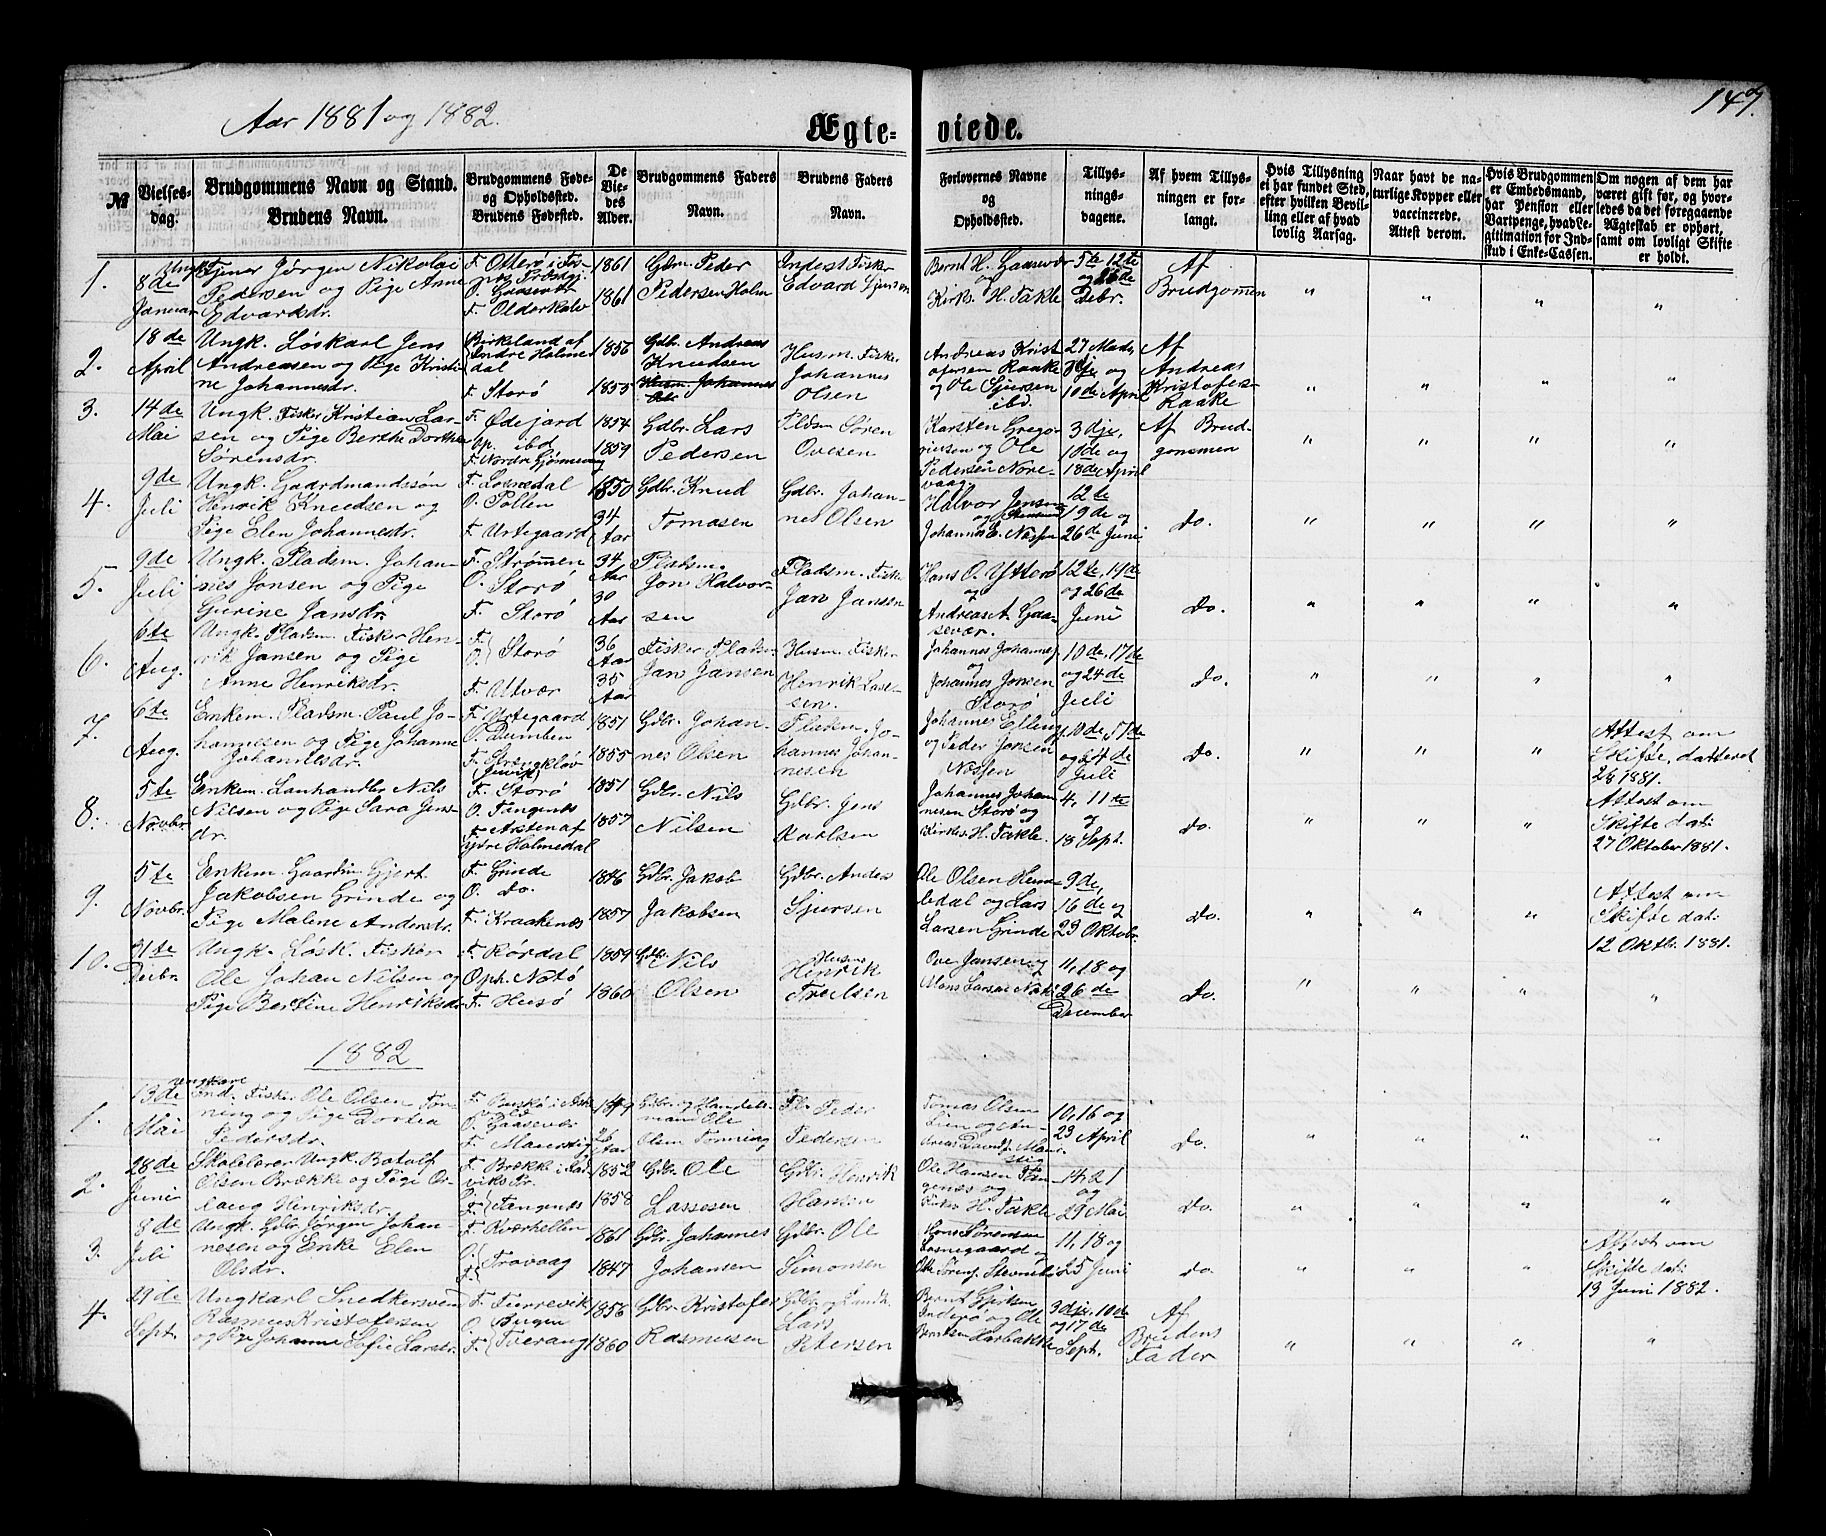 Aar 1881 og 1882.
149.
Ægte- viede.
№
Vielses-
dag.
Brudgommens Navn og Stand.
Brudens Navn.
Brudgommens Føde-
og Opholdssted.
Brudens Fødested.
De
Vie-
des
Alder.
Brudgommens Faders
Navn.
Brudens Faders
Navn.
Forlovernes Navne
og
Opholdssted.
Tillys-
nings-
dagene.
Af hvem Tillys-
ningen er for-
langt.
Hvis Tillysning
ei har fundet Sted,
efter hvilken Bevil-
ling eller af hvad
lovlig Aarsag.
Naar havt de na-
turlige Kopper eller
vaccinerede.
Attest derom.
Hvis Brudgommen
er Embedsmand,
har Pension eller
Vartpenge, hvad Le-
gitimation for Ind-
skud i Enke-Cassen.
Om nogen af dem har
været gift før, og hvor-
ledes da det foregaaende
Ægteskab er ophørt,
samt om lovligt Skifte
er holdt.
1.
8de
Januar
Ungk.
Tjener Jørgen Nikolai
Pedersen og Pige Anne
Edvardsdr.
F. Otterø i
O. Gaasevær
F. Olderkalv
1861
1861
Gdm. Peder
Pedersen Holm
Inderst Fisker
Edvard Sjursen
Bernt H. Gaasevær
og
Kirks. H. Takle
5te 12te
og 26de
Debr.
Af
Brudgomen
" " " "
2.
18de
April
Ungk. Løskarl Jens
Andreasen og Pige Kristi-
ne Johannesdr.
Birkeland af
Indre Holme-
dal
F. Storø
1856
1855
Gdbr. Andreas
Knudsen
Husm. Johannes
Husm. Fisker
Johannes
Olsen
Andreas Krist-
ofersen Raake
og Ole Sjursen
ibd.
27 Marts,
3dje og
10de April
Af
Andreas
Kristofers-
Raake
" " " "
3.
14de
Mai
Ungk. Fisker Kristian Lar-
sen og Pige Berthe Dorthea
Sørensdr.
F. Ødejord
Op. ibd
F. Nordre
1854
1859
Gdbr. Lars
Pedersen
Pldsm Søren
Ovesen
Karsten Grego-
riussen og Ole
Pedersen Nore-
vaag.
3dje,
10de og
18de April
Af Brud-
gommen
" " " "
4.
9de
Juli
Ungk. Gaardmandssøn
Henrik Knudsen og
Pige Elen Johannesdr.
F. Losnedal
O. Pollen
F. Urtegaard
1850
34
Aar
Gdbr. Knud
Tomasen
Gdbr. Johan-
nes Olsen
Halvor Jensen
og
Johannes E. Nessen
12te
19de og
26de Juni
Do.
" " " "
5.
9de
Juli
Ungk. Pladsm. Johan-
nes Jonsen og Pige
Gjertine Jansdr.
F. Strømmen
O. Storø
F. Storø
34
Aar
30
Aar
Pladsm.
Jon Halvor-
sen
Pladsm. Fisker
Jan Jansen
Hans O. Ytterø
og
Andreas A. Gaa-
sevær.
12te, 19de
og 26de
Juni
Do.
" " " "
6.
6te
Aug.
Ungk. Pladsm. Fisker Hen-
rik Jansen og Pige
Anne Henriksdr.
F.
O. Storø
F. Utvær
36
Aar
35
Aar
Fisker Pladsm
Jan Jansen
Husm. Fisker
Henrik Lasse-
sen.
Johannes Johannes.
og
Johannes Jonsen
Storø
10de, 17de
og 24de
Juli
Do.
" " " "
7.
6te
Aug.
Enkem. Pladsm. Paul Jo-
hannesen og Pige Johanne
Johannesdr.
F. Urtegaard
O. Dumben
F.
1851
1855
Gdbr. Johan-
nes Olsen
Pladsm. Jo-
hannes Johan-
nesen
Johannes Elling.
og Peder Jonsen
Nessen
10de, 17de
og 24de
Juli
Do.
" " "
Attest om
Skifte, dateret
1881.
8.
5te
Novbr.
Enkem. Lanhandler Nils
Nilsen og Pige Sara Jens-
dr.
F. Storø
O. Tangenes
F. Arsten af
Ydre Holmedal
1851
1857
Gdbr. Nils
Nilsen
Gdbr. Jens
Karlsen
Johannes Johan-
nesen Storø og
Kirks. H. Takle.
4, 11te
og
18 Sept.
Do.
" " "
Attest om
Skifte dat.
27 Oktober 1881.
9.
5te
Novbr.
Enkem. Gaardm. Gjert
Jakobsen Grinde og
Pige Malene Andersdr.
F. Grinde
O. do.
F. Kraakenes
1846
1857
Gdbr. Jakob
Jakobsen
Gdbr. Anders
Sjursen
Ole Olsen Hum-
ledal og Lars
Larsen Grinde
9de,
16de og
23 Oktobr.
Do.
" " "
Attest om
Skifte dat.
12 Oktbr. 1881.
10.
31te
Decbr.
Ungk. Løsk. Fisker
Ole Johan Nilsen og
Pige Bertine Henriksdr.
F. Rørdal
Oph. Notø
F. Husø
1859
1860
Gdbr. Nils
Olsen
Husm.
Henrik
Truelsen
Ove Jansen og
Mons Larsen
11, 18 og
26de
December
Do.
" " " "
1882
1.
13de
Mai
ungkarl
Ind. Fisker Ole Olsen Ton-
ning og Pige Dortea
Pedersdr.
F.
O. Gaasevær
F.
1849
26
Aar
Gdbr. og Handels-
mand Ole
Olsen Tonning
Peder
Pedersen
Tomas Olsen
Lien og An-
dreas
10, 16 og
23 April
Do.
" " " "
2.
28de
Juni
Skolelærer Ungk. Botolf
Olsen Brække og Pige Or-
laug Henriksdr.
F. Brække i Lad-
viks Pr.
O.
F. Tangenæs
1852
1858
Gdbr. Ole
Lassesen
Gdbr. Henrik
Hansen
Ole Hansen Tan-
genæs og
Kirks. H. Takle
14, 21
og
29 Mai
Do.
" " " "
3.
8de
Juli
Ungk. Gdbr. Jørgen Johan-
nesen og Enke Elen
Olsdr.
F. Kværhellen
O.
F. Travaag
1861
1847
Gdbr. Johannes
Johansen
Gdbr. Ole
Simonsen
Hans Sørensen
Losnegaard og
11, 18 og
25 Juni
Do.
" " "
Attest om
Skifte dat.
13 Juni 1882.
4.
29de
Sept.
Ungkarl Snedkersvend
Rasmus Kristofersen
og Pige Johanne Sofie Larsdr.
F. Furrevik
O. Bergen
F.
1856
1860
Gdbr. Kristofer
Rasmussen
Gdbr. og
Lars
Petersen
Bernt Gjertsen
Inderø og Ole
Berntsen Harbakke
3dje, 10de
og 17de
Sept.
Af
Brudens
Fader
" " " "